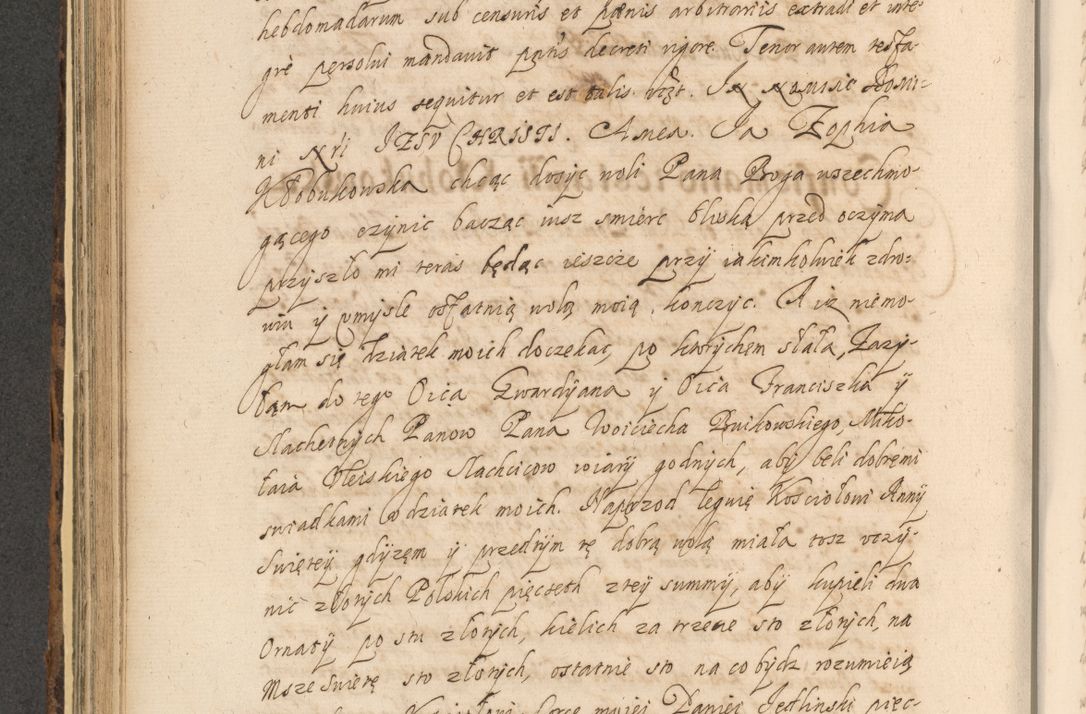 hebdomadarum sub censuris et pœnis arbitrariis extradi et inte-
grè persolui mandauit pntis decreti vigore. Tenor autem testa-
menti huius sequitur et est talis vizt. IN NOMINE Domi-
ni Nri JEZV CHRISTI. Amen. Ja Zophia
Kłobukowska chcąc dosyc woli Pana Boga wszechmo-
gącego czynic bacząc iusz smierc bliską przed oczyma
przyszło mi teras będąc ieszcze przy iakimkolwiek zdro-
wiu ÿ vmysle ostatnią wolą moią konczyc. A iz niemo-
głam się dziatek moich doczekac, po ktorychem słała, Zazy-
łam do tego Oica Gwardÿana ÿ Oica Franciszka ÿ
Slachetnych Panow Pana Woiciecha Miko-
łaia Slachcicow wiarÿ godnych, abÿ beli dobremi
swiadkami o dziatek moich. Naprzod leguię Kosciołowi Annÿ
Swiętey gdÿzem ÿ przedtÿm tę dobrą wolą miała tosz vczÿ-
nic złotÿch Polskich pięcseth z teÿ summÿ, abÿ kupieli dwa
Ornatÿ po stu złotÿch, kielich za trzecie sto złotÿch, na
Msze Swięte sto złotÿch, ostatnie sto na co bÿdz rozumieią
moiei Paniei Jedlinski pięc-